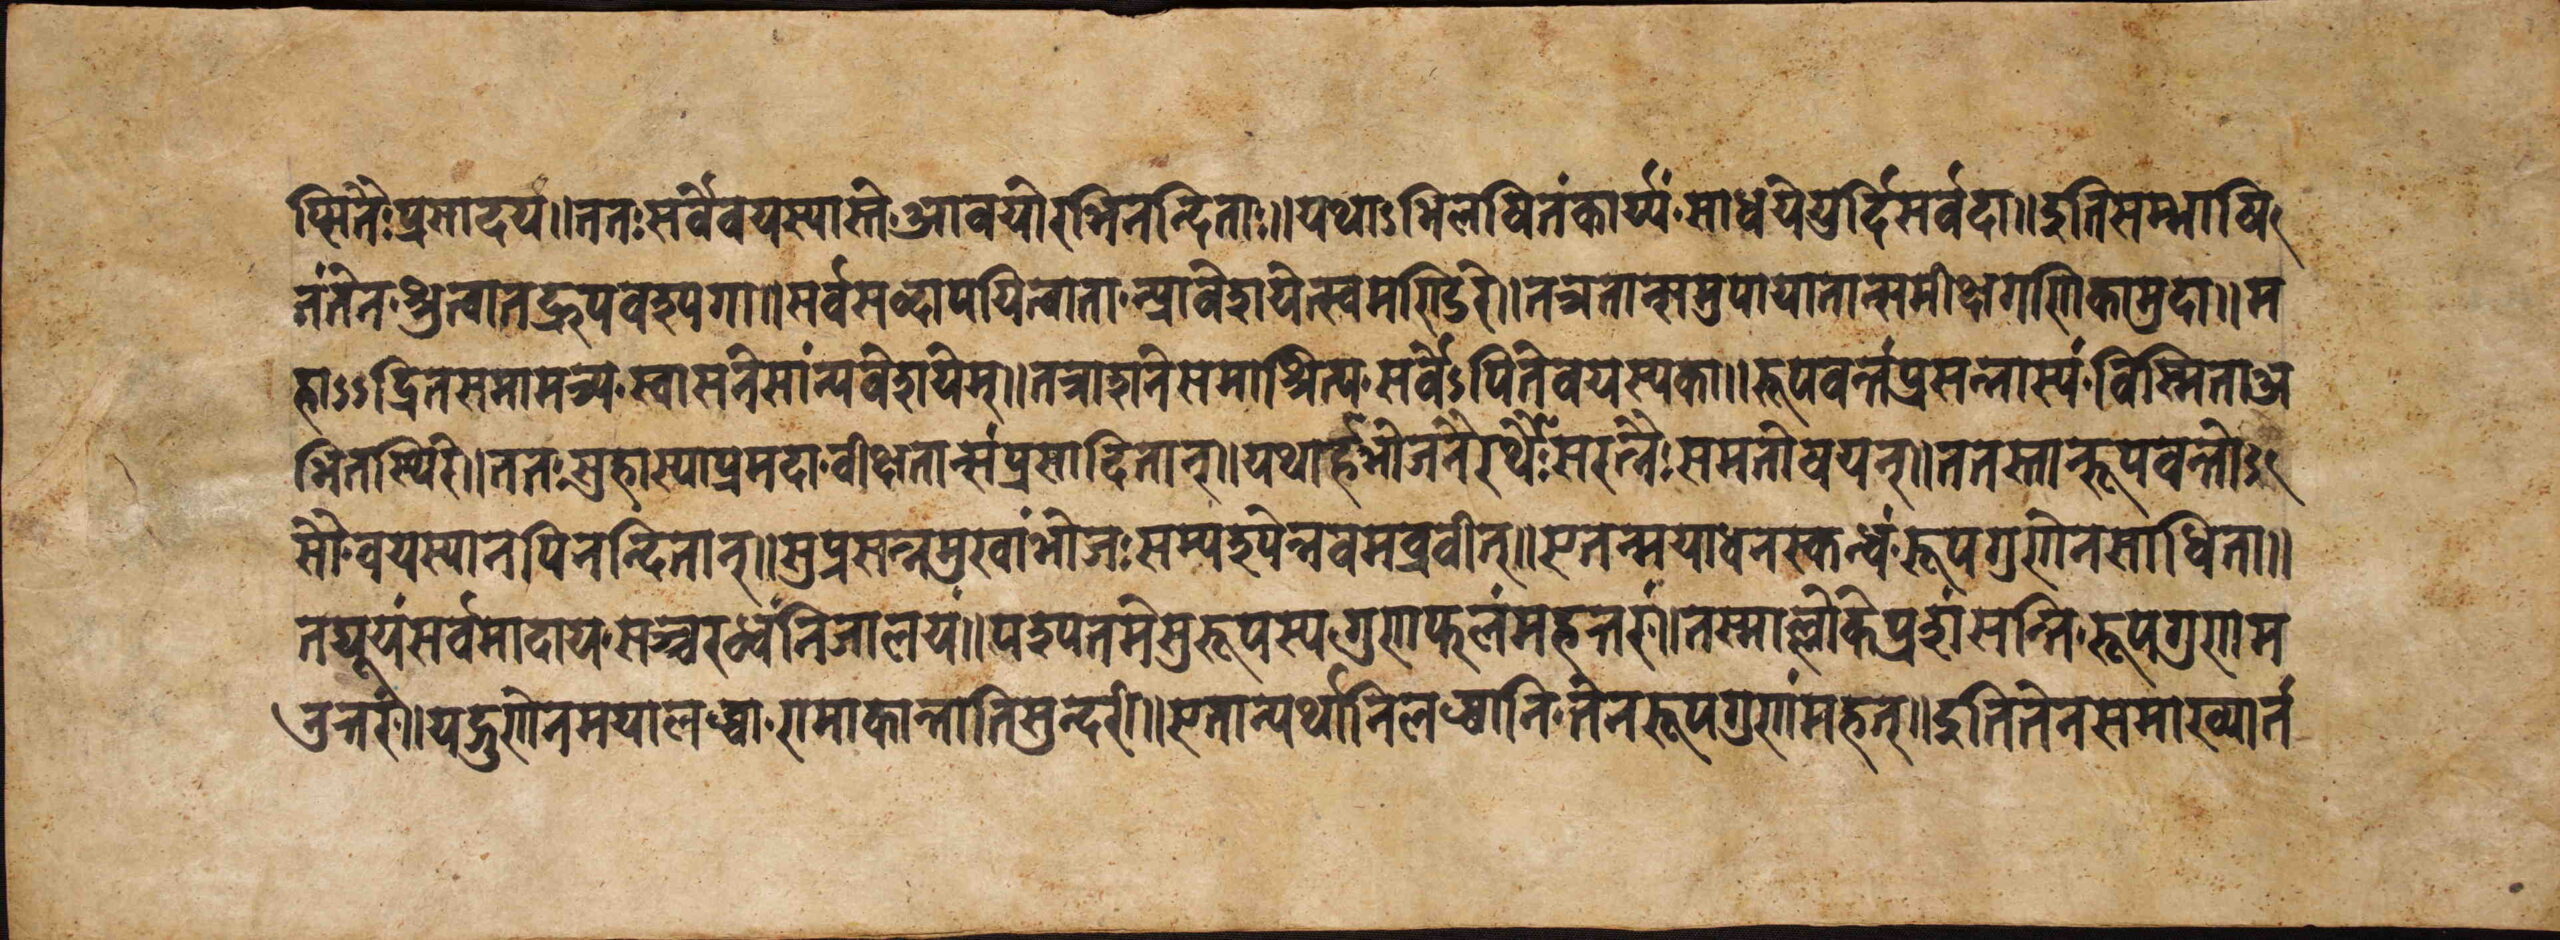 प्सितैःप्रसादय॥ततःसर्वेवयस्यास्तेआवयोरभिनन्दिताः॥यथाऽभिलषितंकार्य्यंसाधयेयुर्हिसर्वदा॥इतिसम्भाषि
तंतेनश्रुत्वातद्रूपवत्यगा॥सर्वंसव्दापयित्वातान्प्रावेशयेत्स्वमन्दिरे॥तत्रतान्समुपायातान्समीक्षगणिकामुदा॥म
हाऽऽद्रितसमामन्त्र्यस्वासनेसांन्यवेशयेम्॥तत्राशनेसमाश्रित्यसर्वेऽपितेवयस्यका॥रूपवन्तंप्रसन्नास्यंविस्मिताअ
भितस्थिरे॥ततःसुहास्याप्रमदावीक्षतान्संप्रसादितान्॥यथार्हभोजनैरर्थैःसरत्नैःसमतोषयत्॥ततस्तान्रूपवन्तोऽ
सौवयस्यानपिनन्दितान्॥सुप्रसन्नमुखांभोजःसम्पश्यन्नेवमब्रवीत्॥एतन्मयाधनस्कन्धंरूपगुणेनसाधिता॥
तद्यूयंसर्वमादायसञ्चरध्वंनिजालयं॥पश्यतमेसुरूपस्यगुणफलंमहत्तरं॥तस्माल्लोकेप्रशंसन्तिरूपगुणम
नुत्तरं॥यद्गुणेनमयालब्धारामाकान्तातिसुन्दरी॥एतान्यर्थानिलब्धानितेनरूपगुणंमहत्॥इतितेनसमाख्यातं